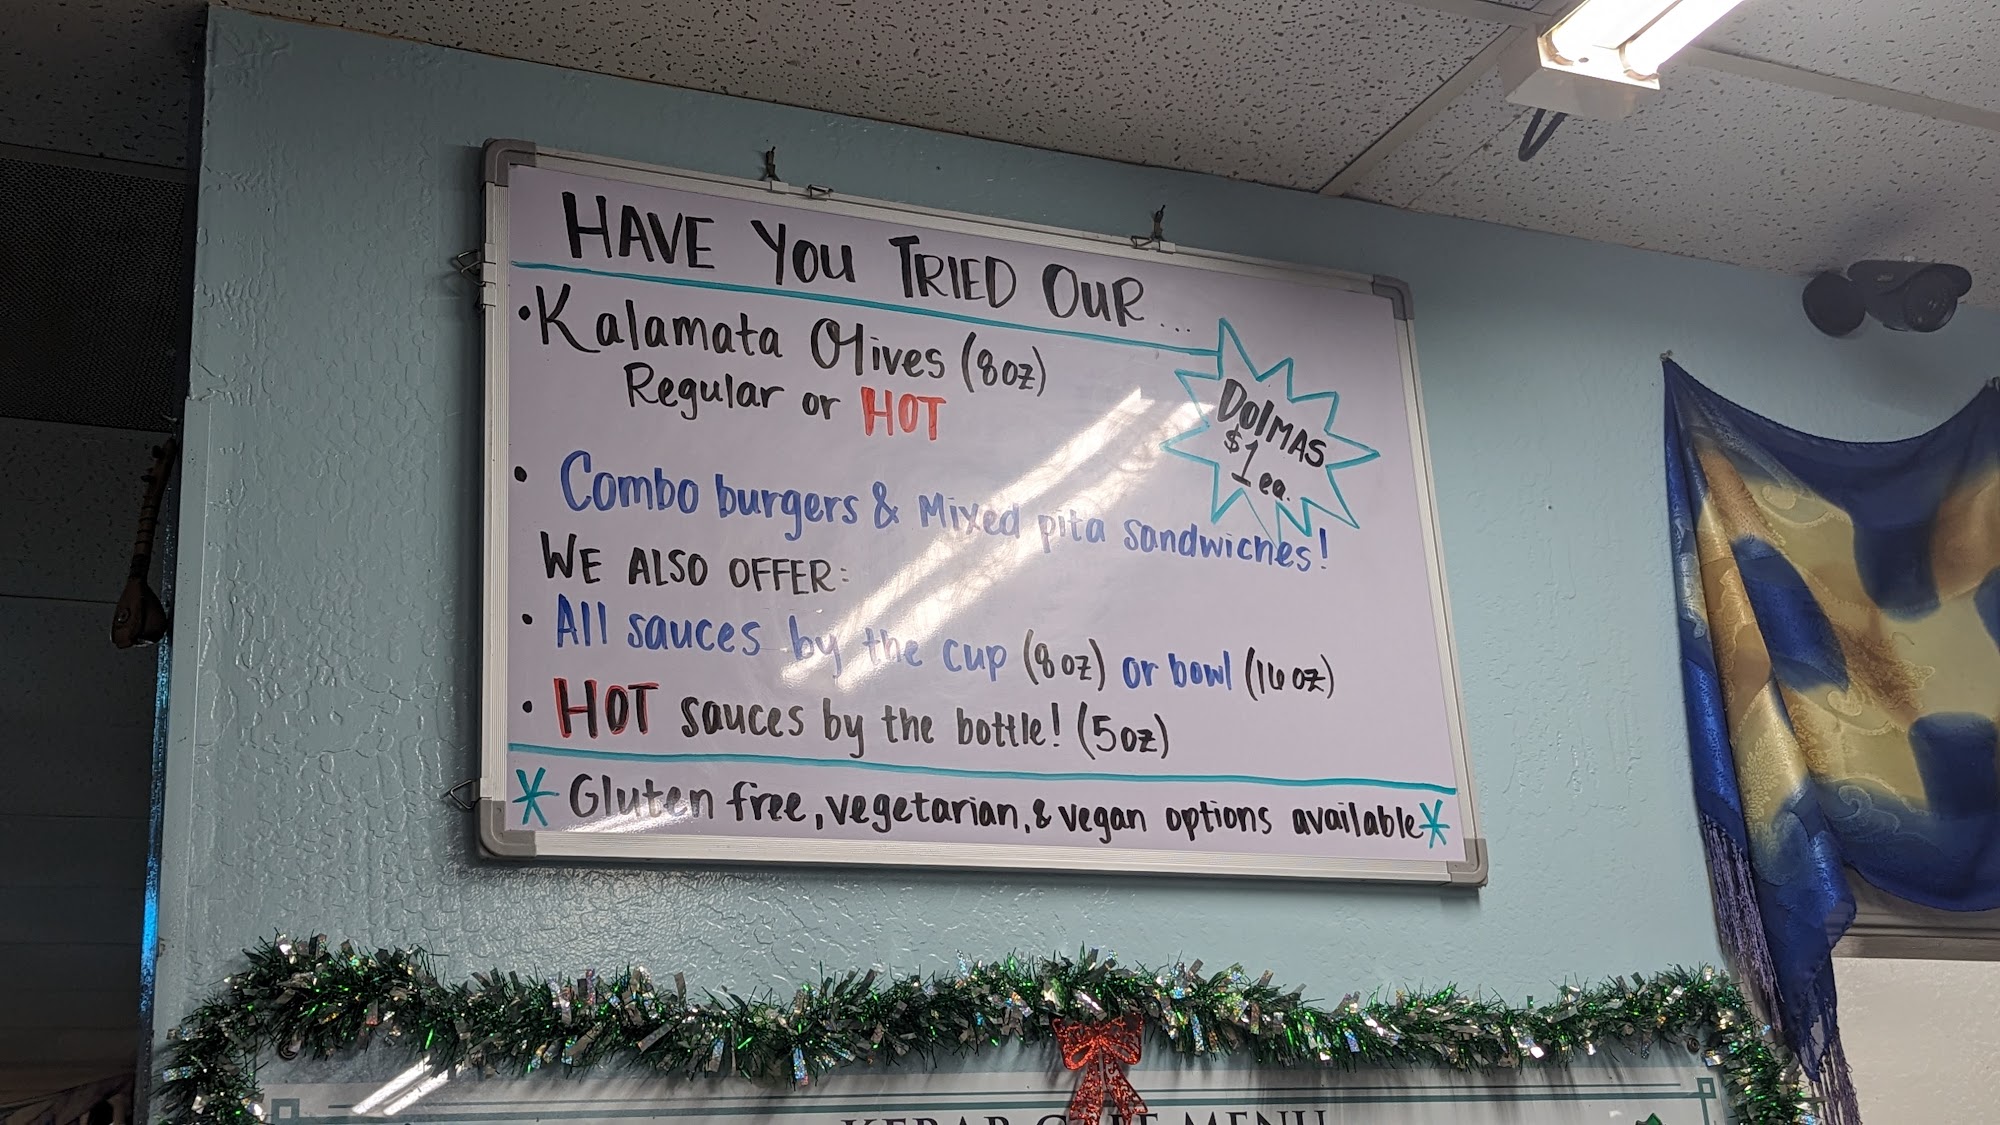 HAVE YOU TRIED OUR...
• Kalamata Olives (8oz)
Regular or HOT
DOlMAS
$1 ea.
• Combo burgers & Mixed pita sandwiches!
WE ALSO OFFER:
• All sauces by the cup (8oz) or bowl (16oz)
• HOT sauces by the bottle! (5oz)
* Gluten free, vegetarian, & vegan options available *
KEBAB CAFE MENU